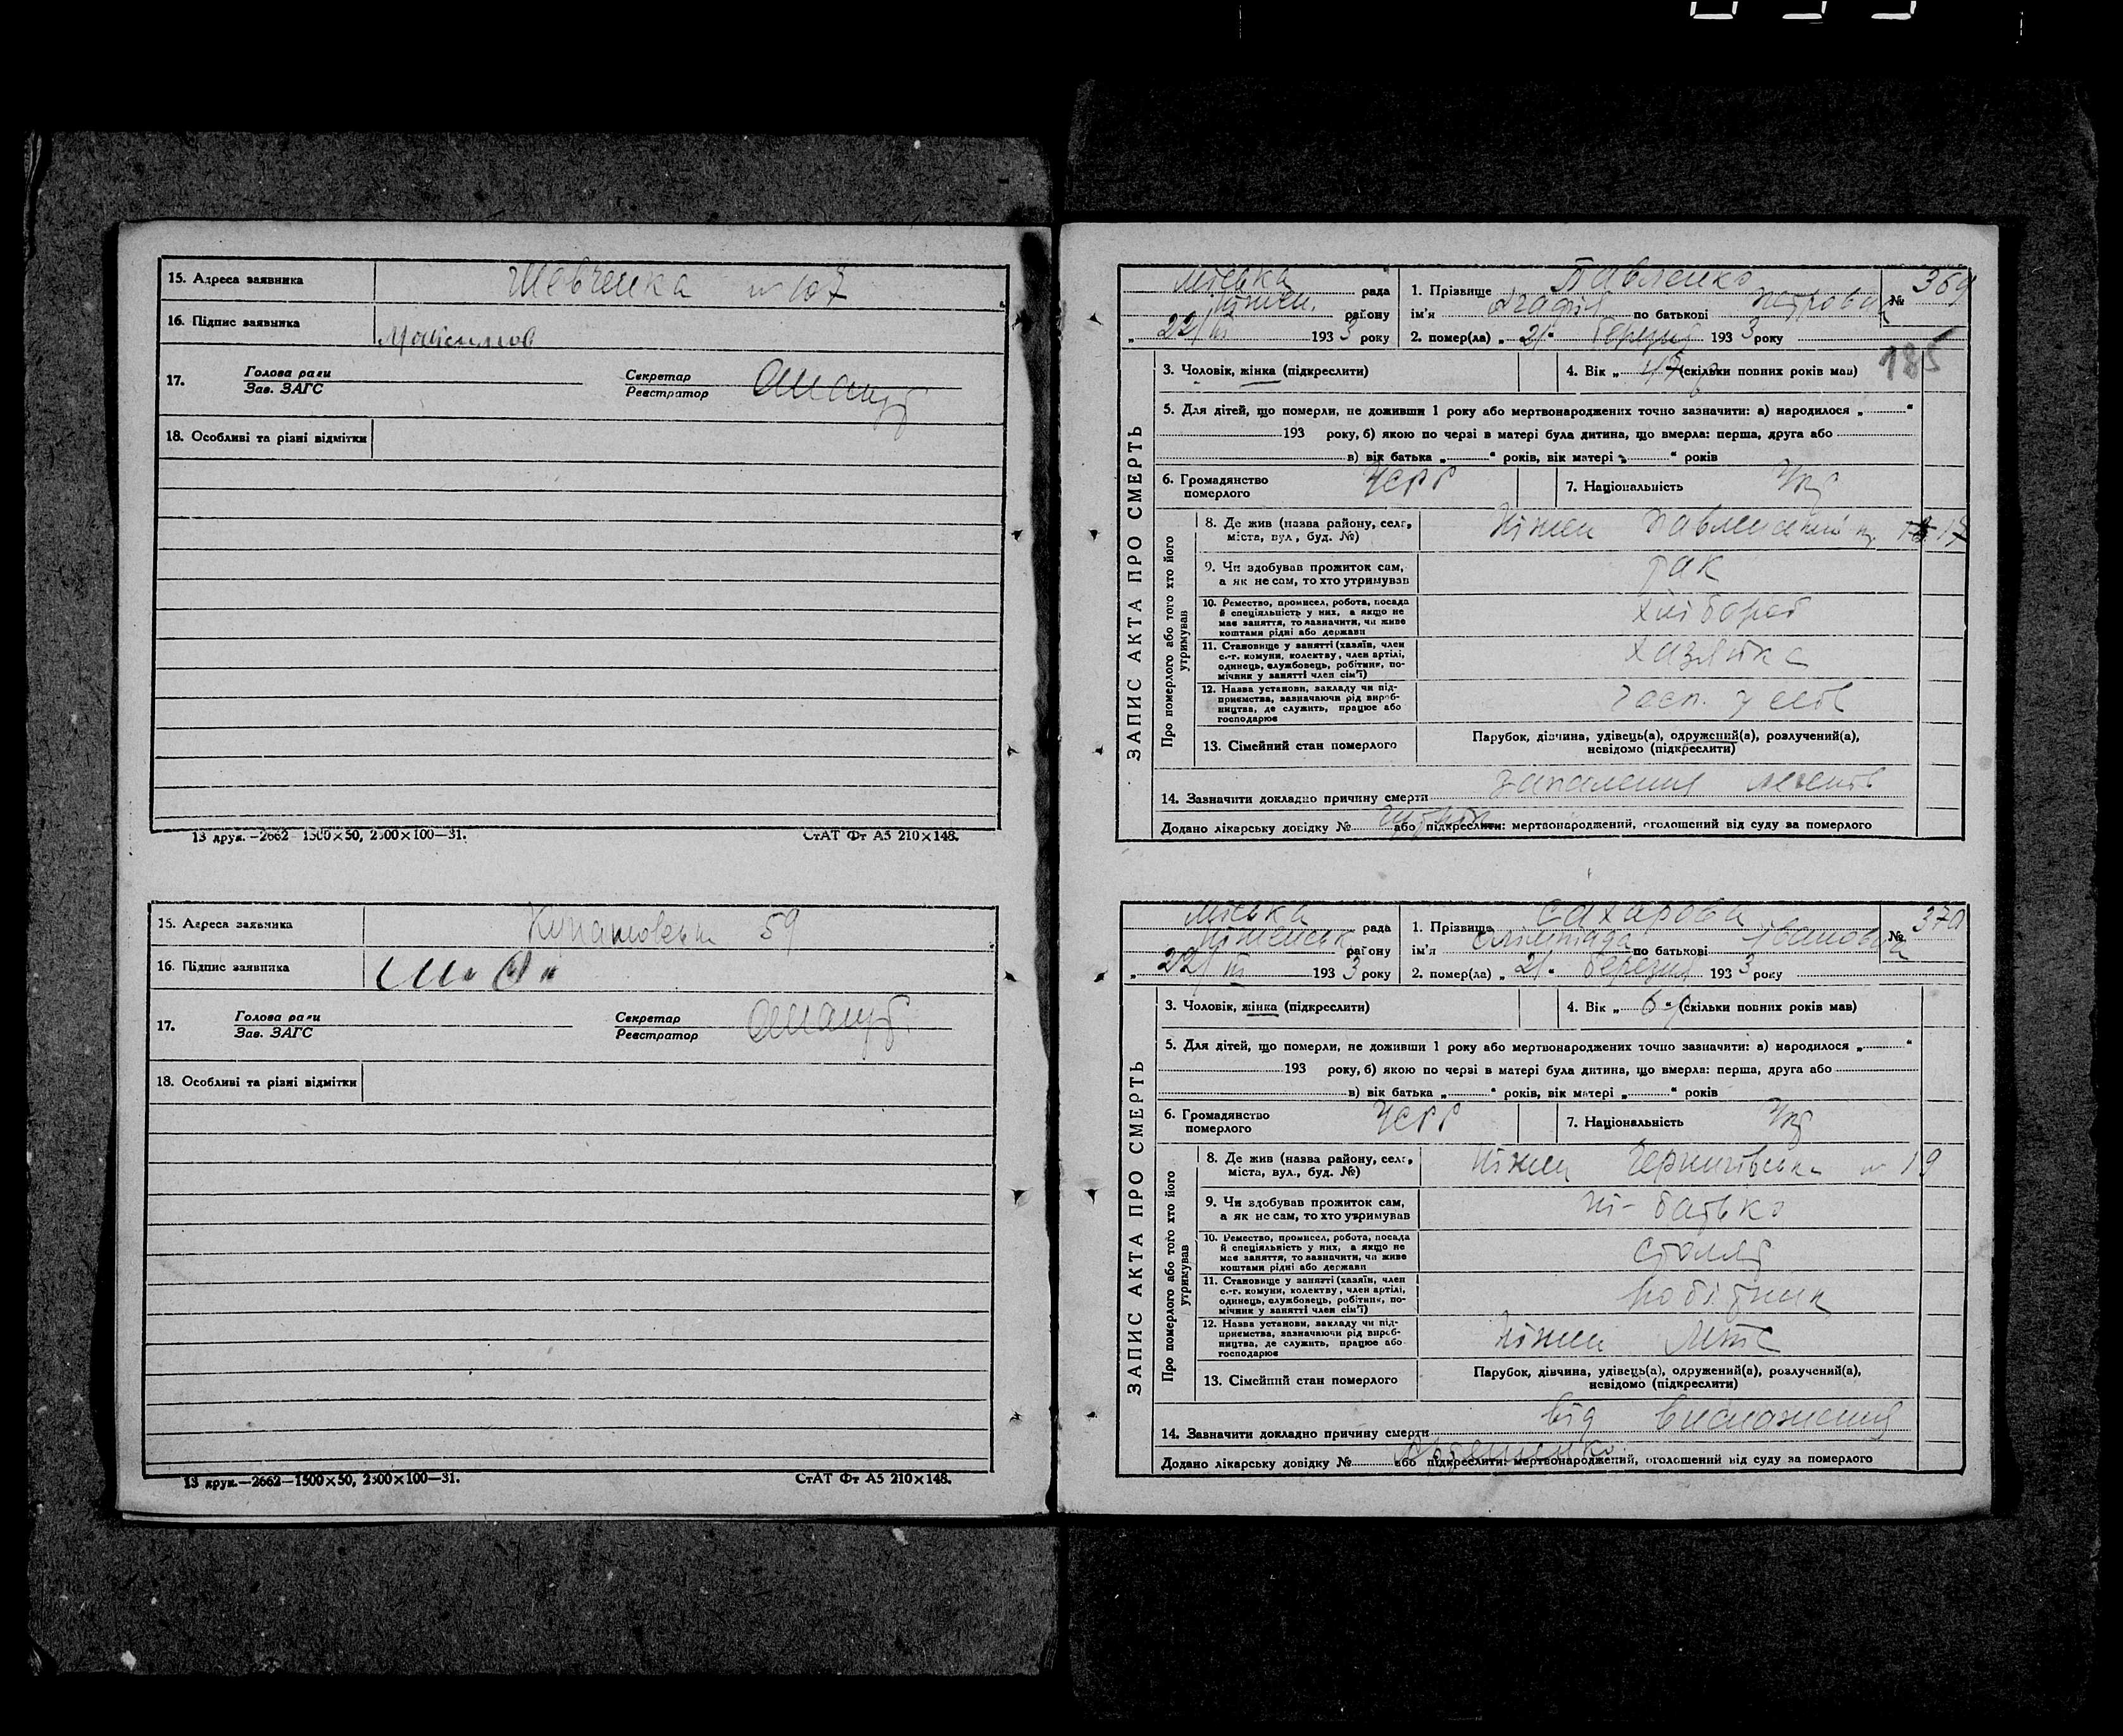 15. Адреса заявника Шевченка № 107
16. Підпис заявника Максимов
17. Голова ради Зав. ЗАГС Секретар Реєстратор
18. Особливі та різні відмітки
13 друк.—2662 1500×50, 2500×100—31. СтАТ Фт А5 210×148.
15. Адреса заявника 59
16. Підпис заявника
17. Голова ради Зав. ЗАГС Секретар Реєстратор
18. Особливі та різні відмітки
13 друк.—2662—1500×50, 2500×100—31. СтАТ Фт А5 210×148.
ЗАПИС АКТА ПРО СМЕРТЬ
Міська рада 1. Прізвище Павленко № 369
Ніжен. району ім'я Агафія по батькові Петровна
„22/III 1933 року 2. помер(ла) „21“ березня 1933 року
185
3. Чоловік, жінка (підкреслити) 4. Вік „47 р (скільки повних років мав)
5. Для дітей, що померли, не доживши 1 року або мертвонароджених точно зазначити: а) народилося „ “
193 року, б) якою по черзі в матері була дитина, що вмерла: перша, друга або
в) вік батька „ “ років, вік матері „ “ років
6. Громадянство померлого УСРР 7. Національність Укр
Про померлого або того хто його утримував
8. Де жив (назва району, села, міста, вул., буд. №) Ніжен 17
9. Чи здобував прожиток сам, а як не сам, то хто утримував так
10. Ремество, промисел, робота, посада й спеціяльність у них, а якщо не має заняття, то зазначити, чи живе коштами рідні або держави хлібороб
11. Становище у занятті (хазяїн, член с.-г. комуни, колективу, член артілі, одинець, службовець, робітник, помічник у занятті член сім'ї) хазяйка
12. Назва установи, закладу чи підприємства, зазначаючи рід виробництва, де служить, працює або господарює госп. у селі
13. Сімейний стан померлого Парубок, дівчина, удівець(а), одружений(а), розлучений(а), невідомо (підкреслити)
14. Зазначити докладно причину смерти запалення легенів
Додано лікарську довідку № або підкреслити: мертвонароджений, оголошений від суду за померлого
ЗАПИС АКТА ПРО СМЕРТЬ
Міська рада 1. Прізвище Сахарова № 370
Ніженськ району ім'я Олімпіада по батькові Івановна
„22/III 1933 року 2. помер(ла) „21“ березня 1933 року
3. Чоловік, жінка (підкреслити) 4. Вік „6 р (скільки повних років мав)
5. Для дітей, що померли, не доживши 1 року або мертвонароджених точно зазначити: а) народилося „ “
193 року, б) якою по черзі в матері була дитина, що вмерла: перша, друга або
в) вік батька „ “ років, вік матері „ “ років
6. Громадянство померлого УСРР 7. Національність Укр
Про померлого або того хто його утримував
8. Де жив (назва району, села, міста, вул., буд. №) Ніжен Чернигівська № 19
9. Чи здобував прожиток сам, а як не сам, то хто утримував ні - батько
10. Ремество, промисел, робота, посада й спеціяльність у них, а якщо не має заняття, то зазначити, чи живе коштами рідні або держави столяр
11. Становище у занятті (хазяїн, член с.-г. комуни, колективу, член артілі, одинець, службовець, робітник, помічник у занятті член сім'ї) робітник
12. Назва установи, закладу чи підприємства, зазначаючи рід виробництва, де служить, працює або господарює Ніжен МТС
13. Сімейний стан померлого Парубок, дівчина, удівець(а), одружений(а), розлучений(а), невідомо (підкреслити)
14. Зазначити докладно причину смерти від виснаження
Додано лікарську довідку № або підкреслити: мертвонароджений, оголошений від суду за померлого